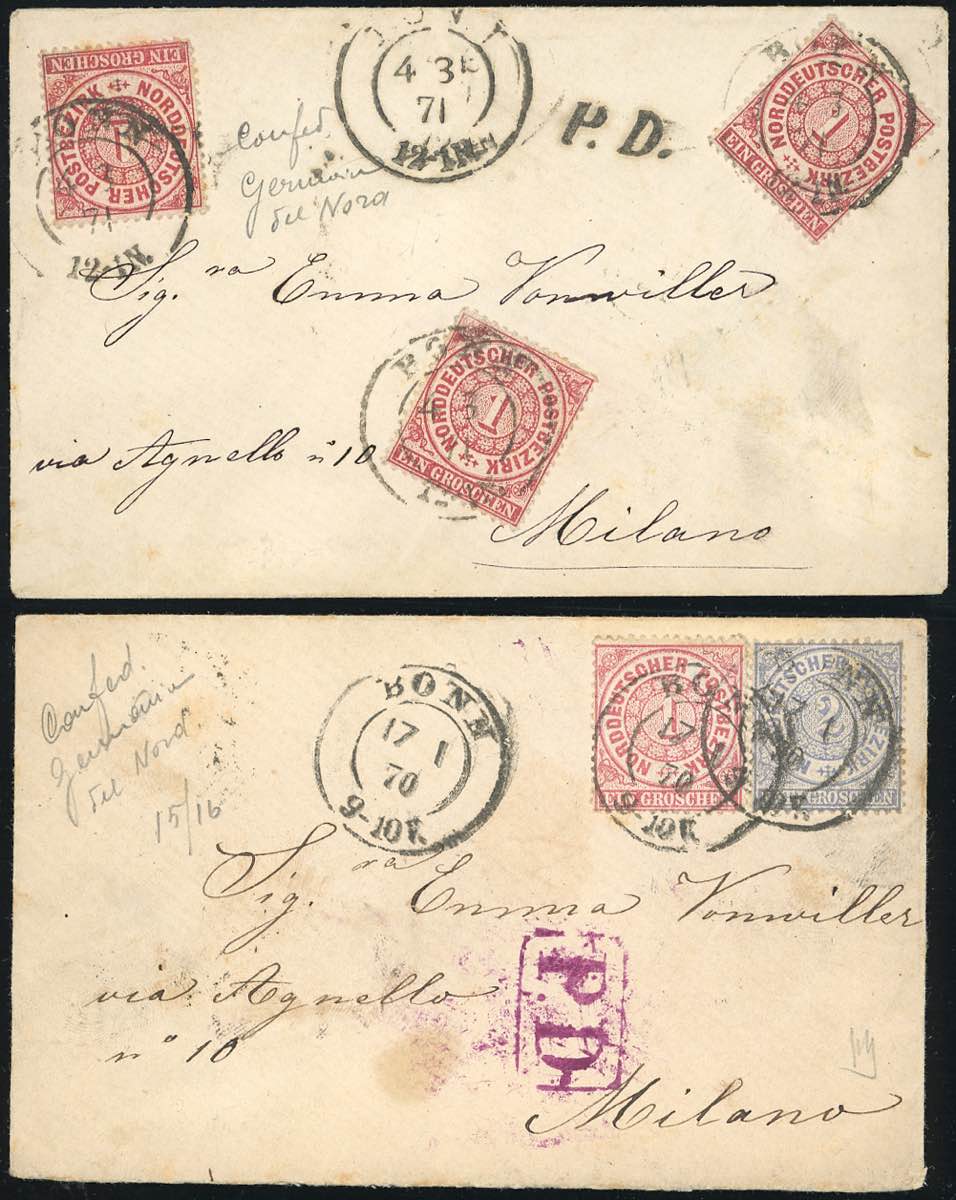 NORDDEUTSCHER POSTBEZIRK
1
EIN GROSCHEN
12-1N.
71
4 3
71
12-1N.
P. D.
NORDDEUTSCHER POSTBEZIRK
1
EIN GROSCHEN
Confed.
Germania
del Nord
Sig.ra Emma Vonwiller
NORDDEUTSCHER POSTBEZIRK
1
EIN GROSCHEN
via Agnello n° 10
Milano
Confed.
Germania
del Nord
15/16
BONN
17 1
70
9-10V.
NORDDEUTSCHER POSTBEZIRK
1
EIN GROSCHEN
BONN
17 1
70
9-10V.
2
GROSCHEN
Sig.ra Emma Vonwiller
via Agnello
n° 10
P.D.
Milano